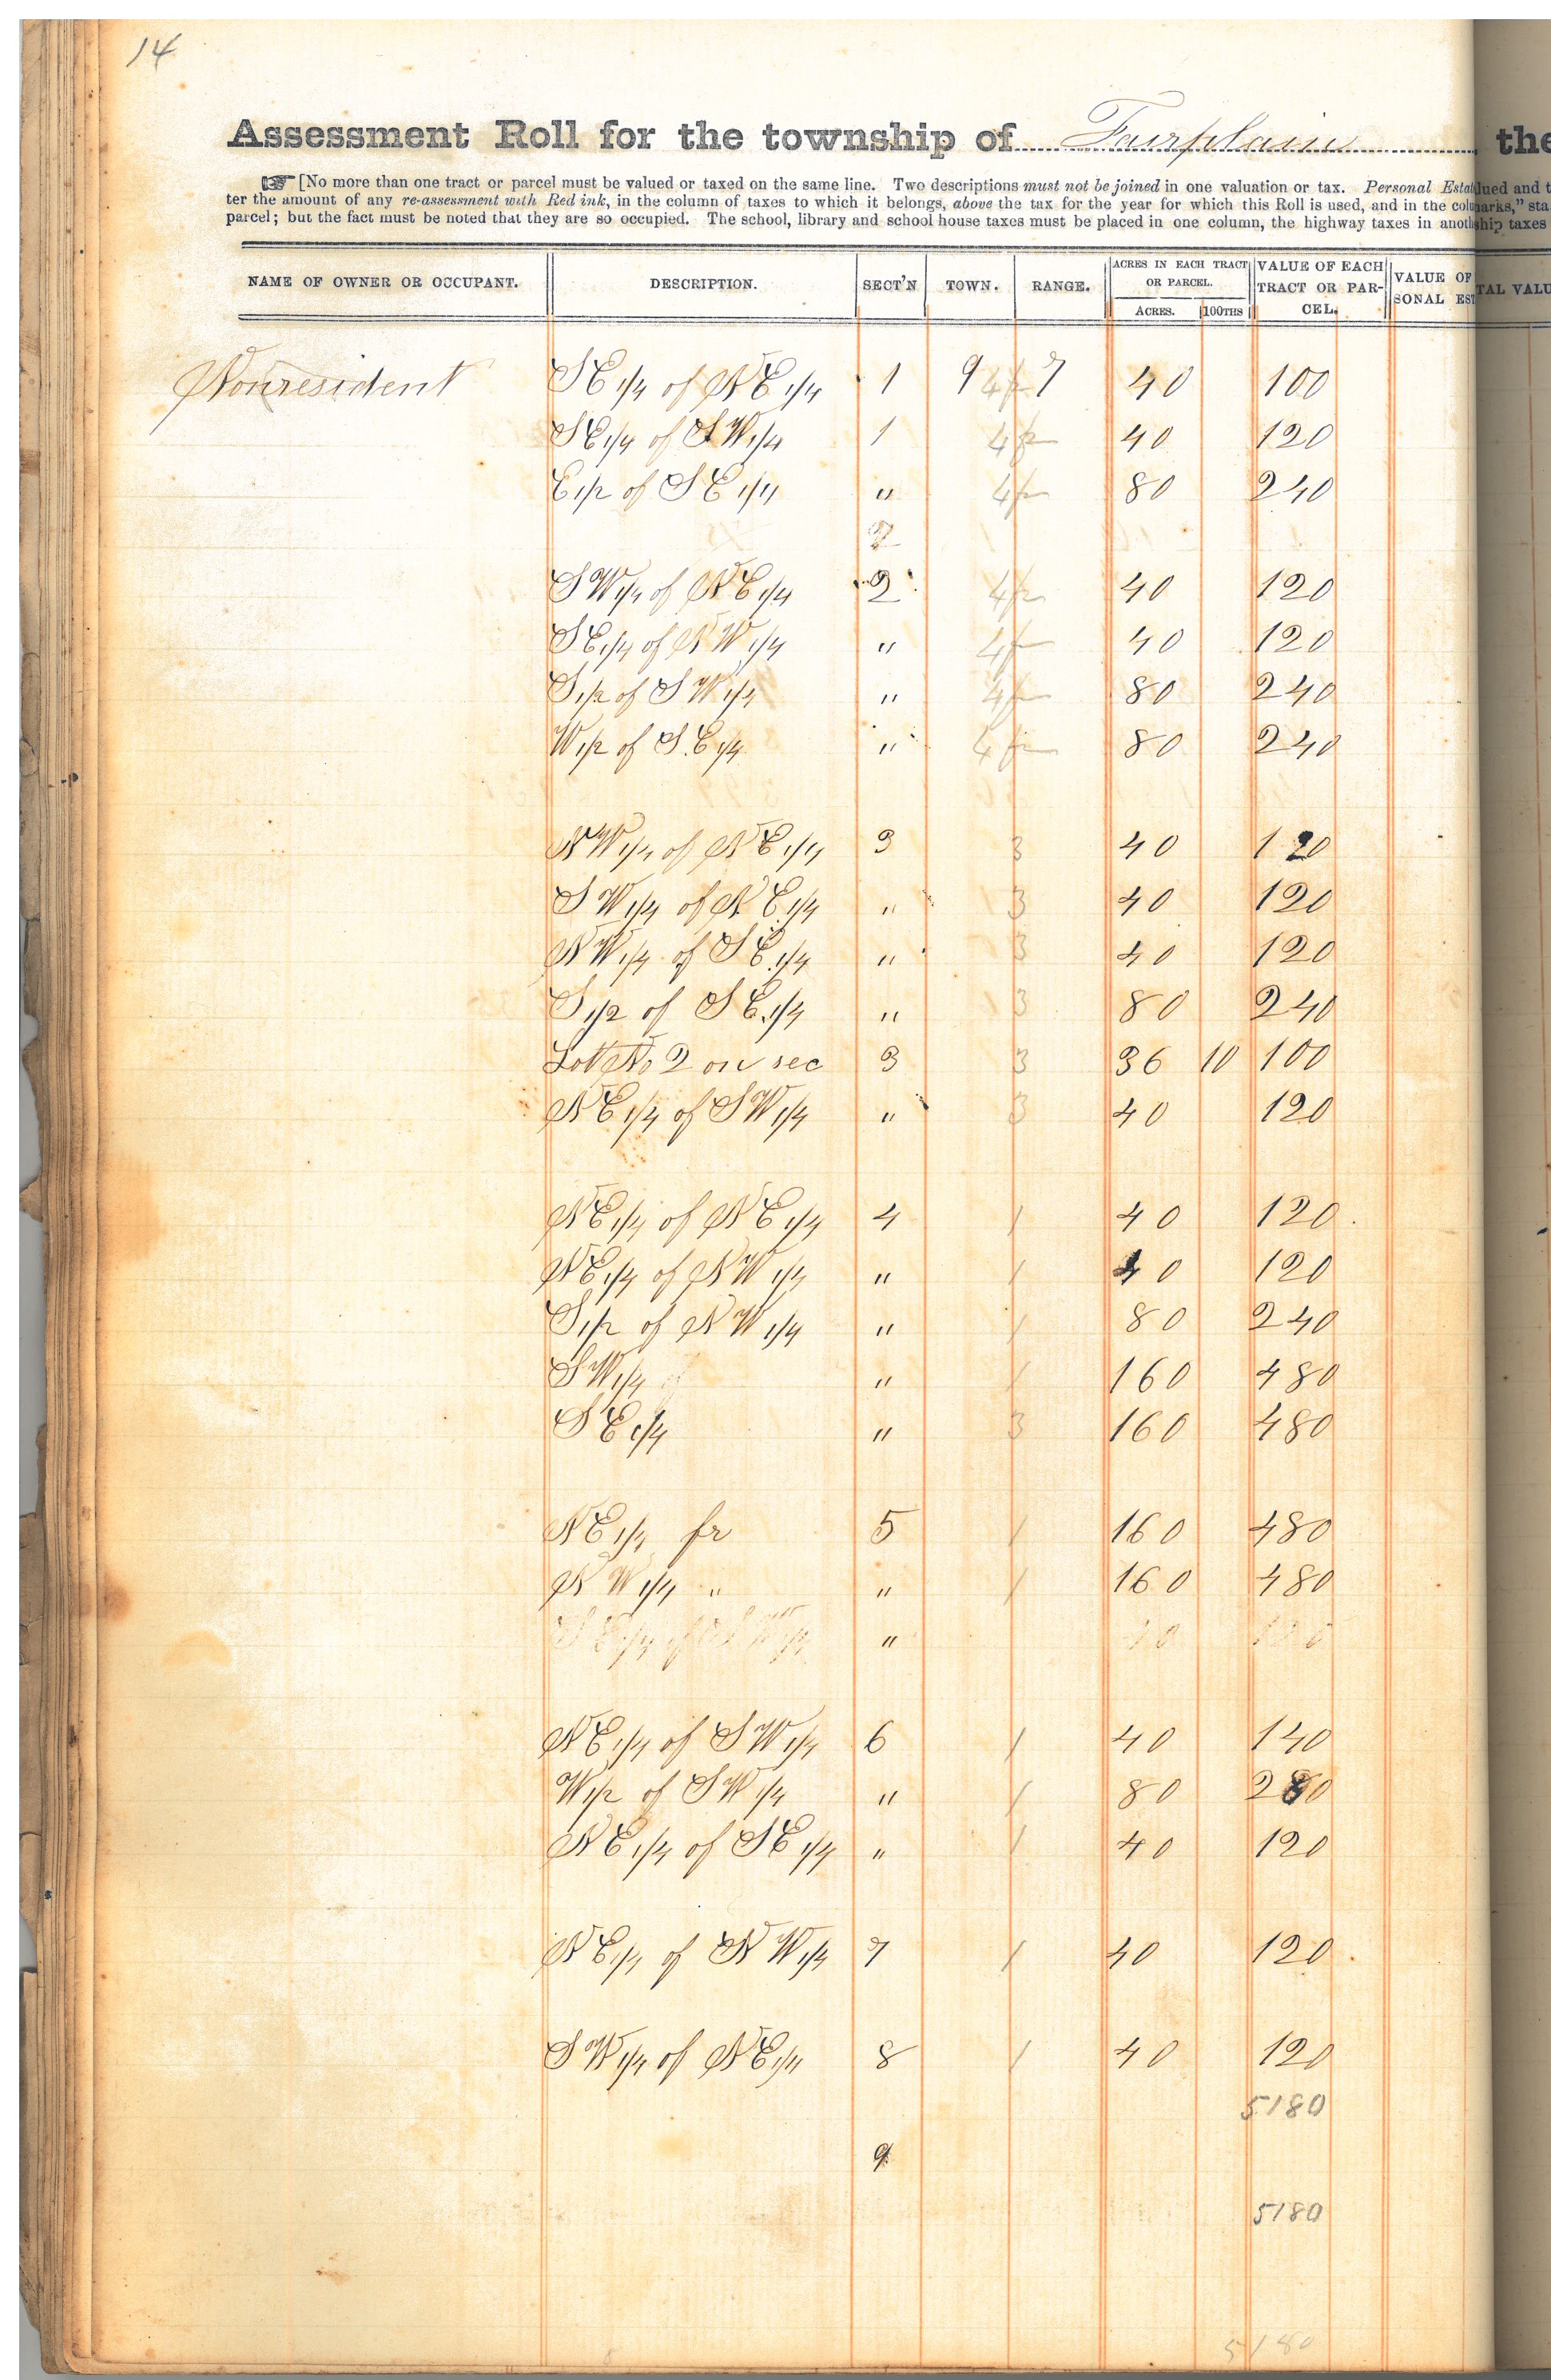 14
Assessment Roll for the township of Fairplain the
[No more than one tract or parcel must be valued or taxed on the same line. Two descriptions must not be joined in one valuation or tax. Personal Estat lued and t
ter the amount of any re-assessment with Red ink, in the column of taxes to which it belongs, above the tax for the year for which this Roll is used, and in the colu marks," sta
parcel; but the fact must be noted that they are so occupied. The school, library and school house taxes must be placed in one column, the highway taxes in anoth ship taxes
NAME OF OWNER OR OCCUPANT. DESCRIPTION. SECT'N TOWN. RANGE. ACRES IN EACH TRACT OR PARCEL. ACRES. 100THS VALUE OF EACH TRACT OR PAR-CEL. VALUE OF SONAL EST TAL VALU
Nonresident SE 1/4 of NE 1/4 1 9 7 40 100
SE 1/4 of SW 1/4 1 40 120
E 1/2 of SE 1/4 " 80 240
2
SW 1/4 of NE 1/4 2 40 120
SE 1/4 of NW 1/4 " 40 120
S 1/2 of SW 1/4 " 80 240
W 1/2 of S.E 1/4 " 80 240
NW 1/4 of NE 1/4 3 3 40 120
SW 1/4 of NE 1/4 " 3 40 120
NW 1/4 of SE 1/4 " 3 40 120
S 1/2 of SE 1/4 " 3 80 240
Lot No 2 on sec 3 3 36 10 100
NE 1/4 of SW 1/4 " 3 40 120
NE 1/4 of NE 1/4 4 1 40 120
NE 1/4 of NW 1/4 " 1 40 120
S 1/2 of NW 1/4 " 1 80 240
SW 1/4 of " 1 160 480
SE 1/4 " 3 160 480
NE 1/4 fr 5 1 160 480
NW 1/4 " " 1 160 480
"
NE 1/4 of SW 1/4 6 1 40 140
W 1/2 of SW 1/4 " 1 80 280
NE 1/4 of SE 1/4 " 1 40 120
NE 1/4 of NW 1/4 7 1 40 120
SW 1/4 of NE 1/4 8 1 40 120
5180
9
5180
5180